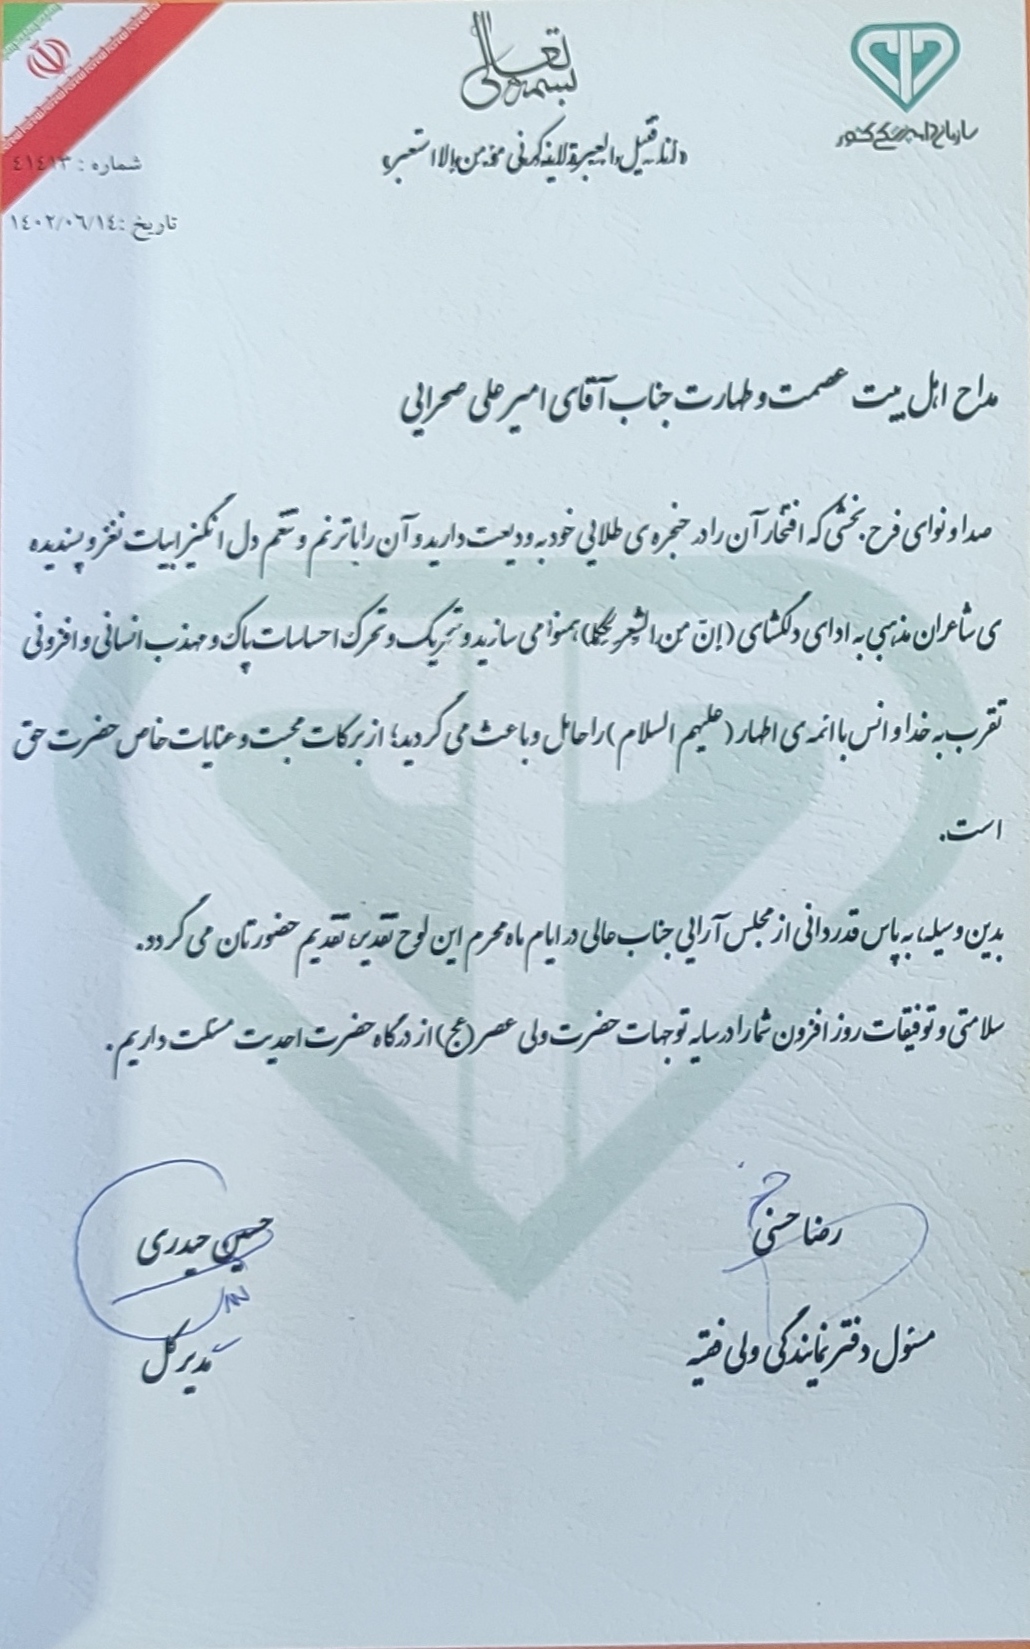 بسمه تعالی
سازمان دامپزشکی کشور
«أنا قتیل العبرة لایذکرنی مؤمن إلا استعبر»
شماره : ٤١٤١٣
تاریخ :١٤٠٢/٠٦/١٤
مداح اهل بیت عصمت و طهارت جناب آقای امیرعلی صحرایی
صدا و نوای فرح بخشی که افتخار آن را در حنجره ی طلایی خود به ودیعت دارید و آن را با ترنم و تنغم دل انگیز ابیات نغز و پسندیده
ی شاعران مذهبی به ادای دلگشای (إن من الشعر لحکما) همنوا می سازید و تحریک و تحرک احساسات پاک و مهذب انسانی و افزونی
تقرب به خدا و انس با ائمه ی اطهار (علیهم السلام) را حامل و باعث می گردید؛ از برکات محبت و عنایات خاص حضرت حق
است.
بدین وسیله، به پاس قدردانی از مجلس آرایی جناب عالی در ایام ماه محرم این لوح تقدیر، تقدیم حضورتان می گردد.
سلامتی و توفیقات روز افزون شما را در سایه توجهات حضرت ولی عصر (عج) از درگاه حضرت احدیت مسئلت داریم.
رضا حسنی
مسئول دفتر نمایندگی ولی فقیه
حسین حیدری
مدیر کل